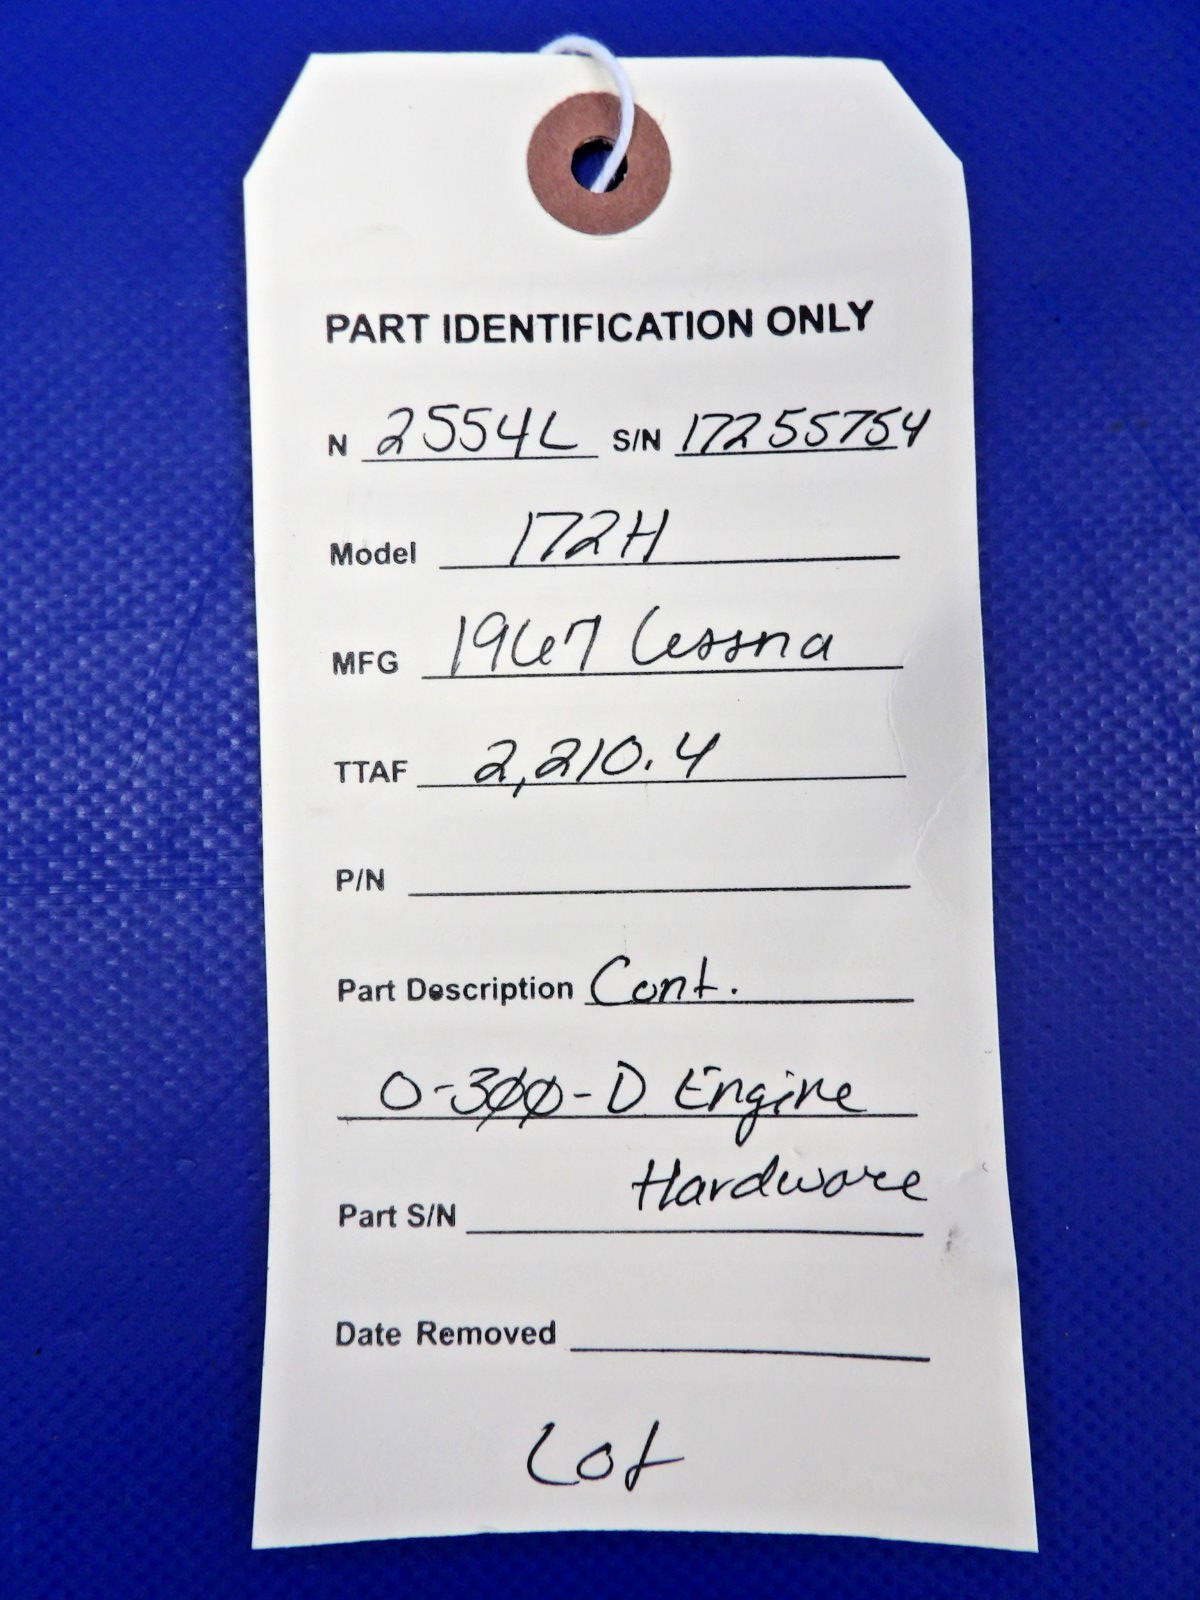 PART IDENTIFICATION ONLY
N 2554L S/N 17255754
Model 172H
MFG 1967 Cessna
TTAF 2,210.4
P/N
Part Description Cont.
O-300-D Engine
Hardware
Part S/N
Date Removed
Lot